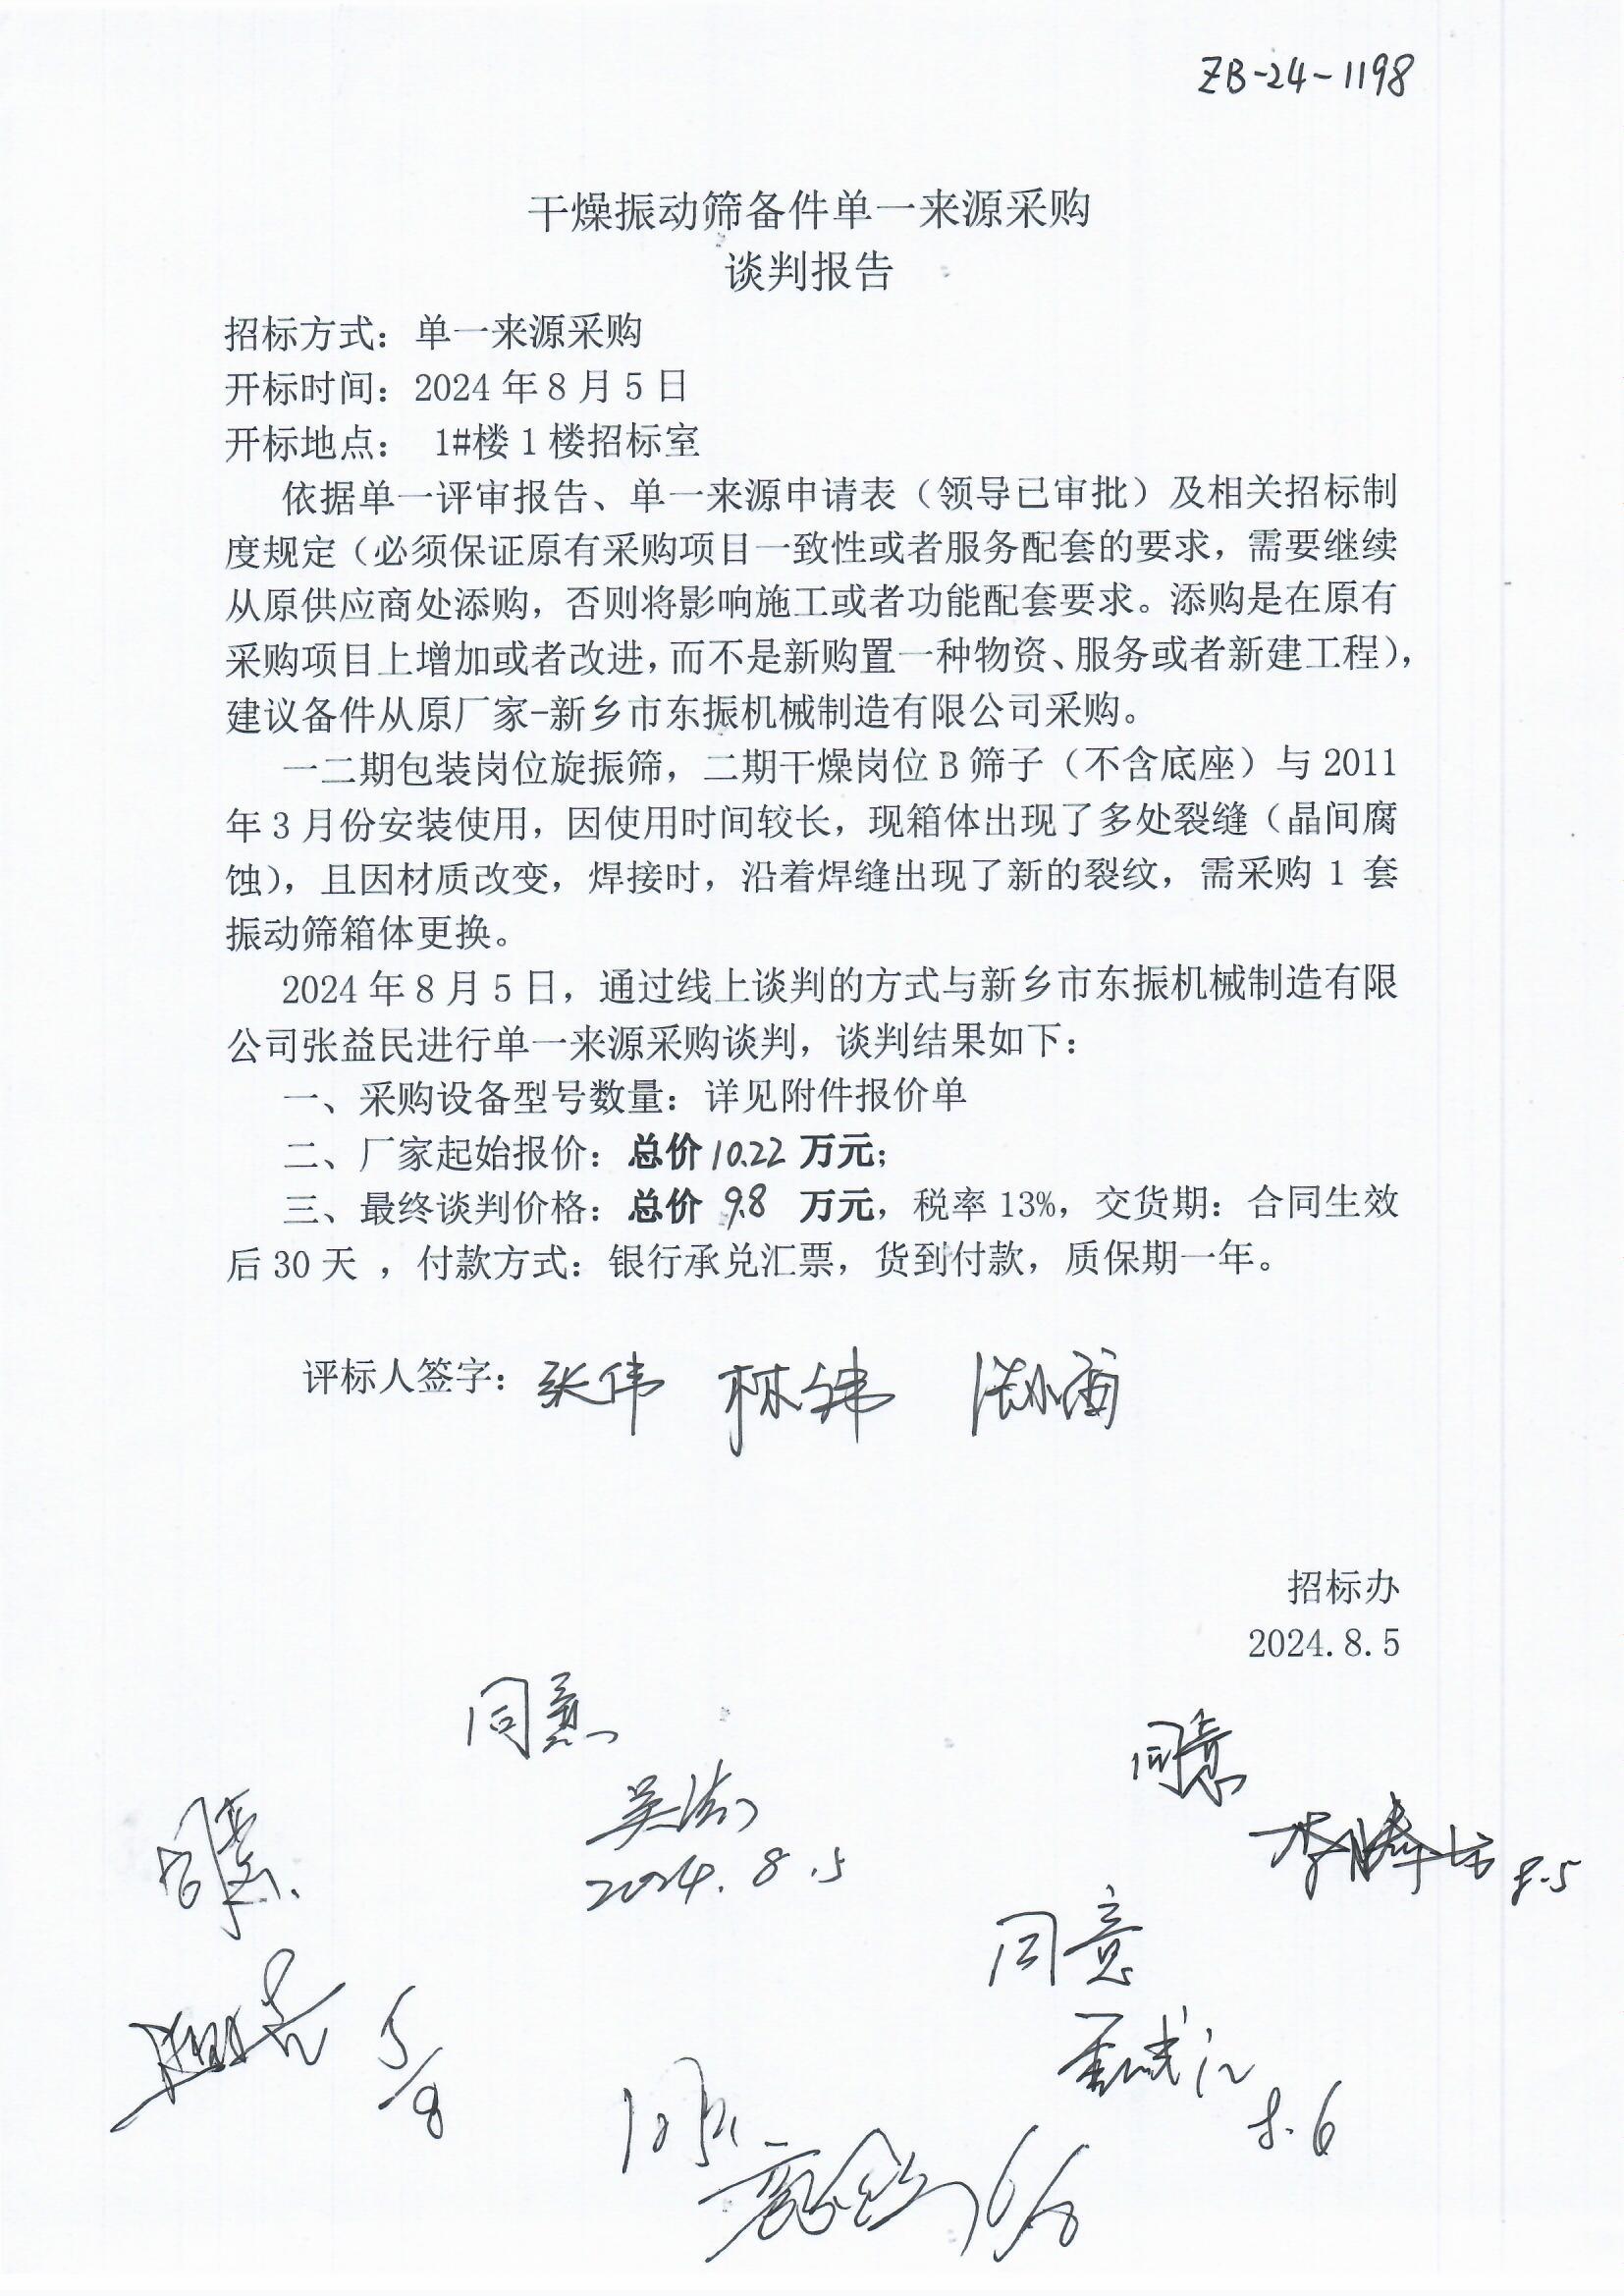 ZB-24-1198
干燥振动筛备件单一来源采购
谈判报告
招标方式：单一来源采购
开标时间：2024年8月5日
开标地点： 1#楼1楼招标室
依据单一评审报告、单一来源申请表（领导已审批）及相关招标制
度规定（必须保证原有采购项目一致性或者服务配套的要求，需要继续
从原供应商处添购，否则将影响施工或者功能配套要求。添购是在原有
采购项目上增加或者改进，而不是新购置一种物资、服务或者新建工程），
建议备件从原厂家-新乡市东振机械制造有限公司采购。
一二期包装岗位旋振筛，二期干燥岗位B筛子（不含底座）与2011
年3月份安装使用，因使用时间较长，现箱体出现了多处裂缝（晶间腐
蚀），且因材质改变，焊接时，沿着焊缝出现了新的裂纹，需采购1套
振动筛箱体更换。
2024年8月5日，通过线上谈判的方式与新乡市东振机械制造有限
公司张益民进行单一来源采购谈判，谈判结果如下：
一、采购设备型号数量：详见附件报价单
二、厂家起始报价：总价10.22万元；
三、最终谈判价格：总价 9.8 万元，税率13%，交货期：合同生效
后30天 ，付款方式：银行承兑汇票，货到付款，质保期一年。
评标人签字：张伟 林纬
招标办
2024.8.5
同意
同意
吴
2024.8.5
同意
8.5
同意
5/8
同意
8.6
6/8